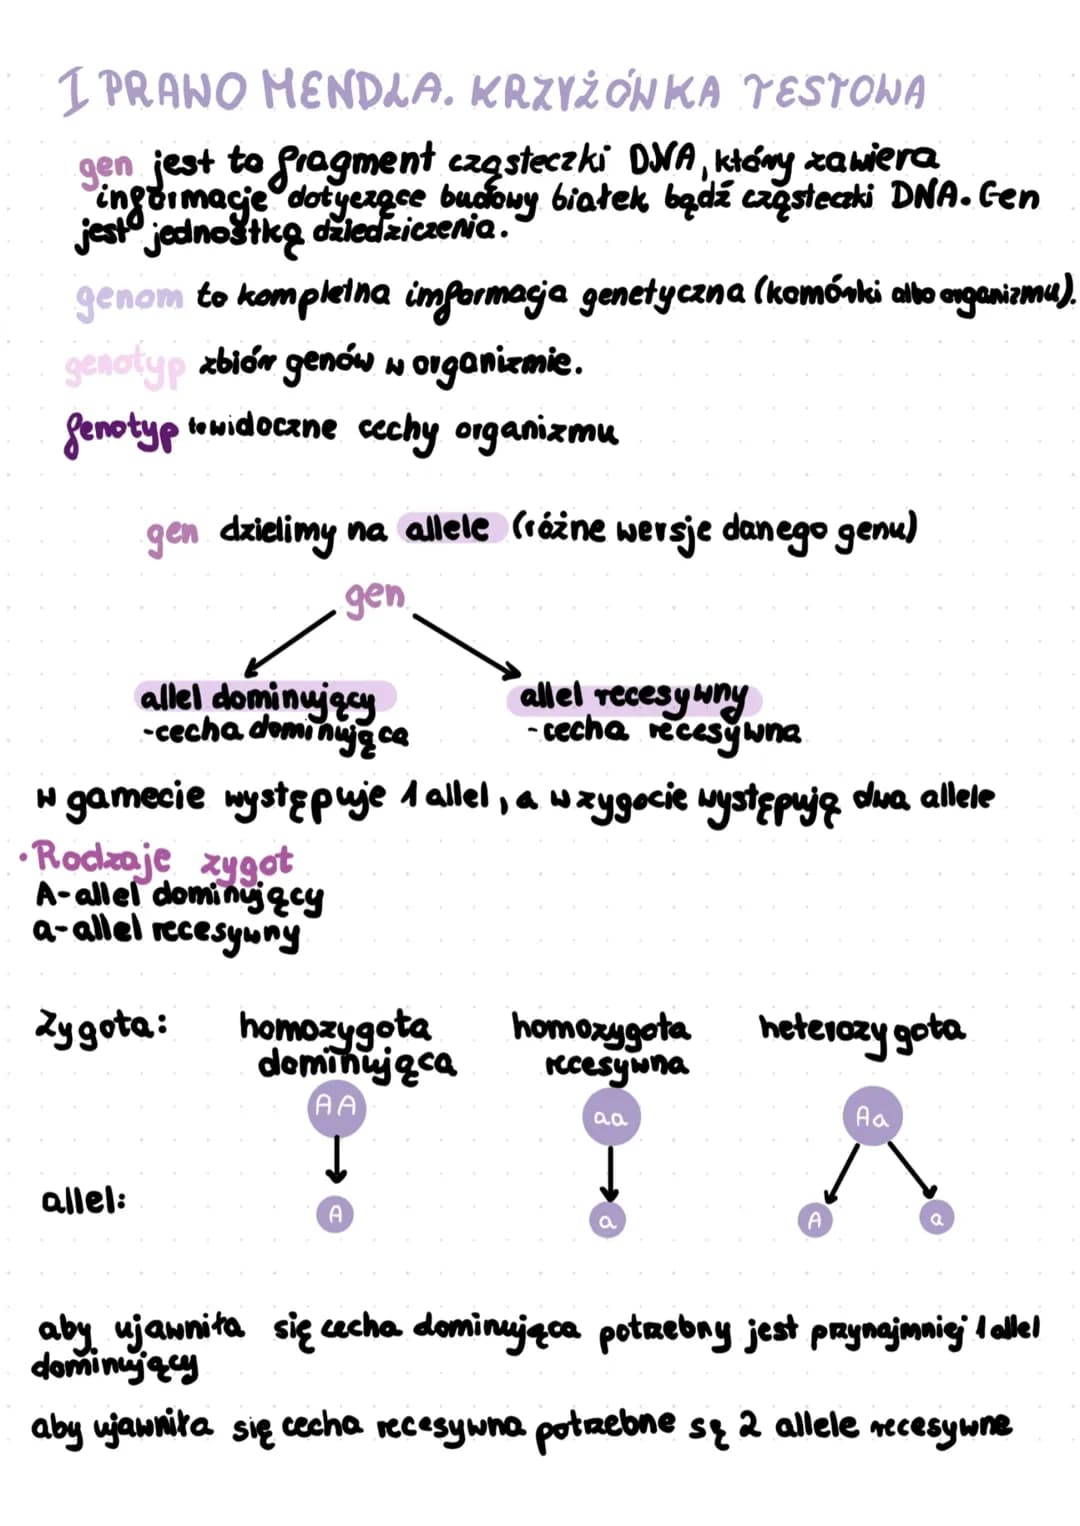 I PRAWO MENDLA. KRZYŻÓWKA TESTOWA
gen jest to fragment cząsteczki DNA, który zawiera
informacje dotyczące budowy białek bądź cząsteczki DNA. Gen
jest jednostką dziedziczenia.
genom to kompletna imformacja genetyczna (komórki albo organizmu).
genotyp zbiór genów w organizmie.
fenotyp to widoczne cechy organizmu
gen dzielimy na allele (różne wersje danego genu)
gen
allel dominujący
-cecha dominująca
allel recesywny
-cecha recesywna
w gamecie występuje 1 allel, a w zygocie występują dwa allele
• Rodzaje zygot
A-allel dominujący
a-allel recesywny
Zygota: homozygota dominująca homozygota recesywna heterozygota
AA aa Aa
allel: A a A a
aby ujawniła się cecha dominująca potrzebny jest przynajmniej 1 allel
dominujący
aby ujawniła się cecha recesywna potrzebne są 2 allele recesywne